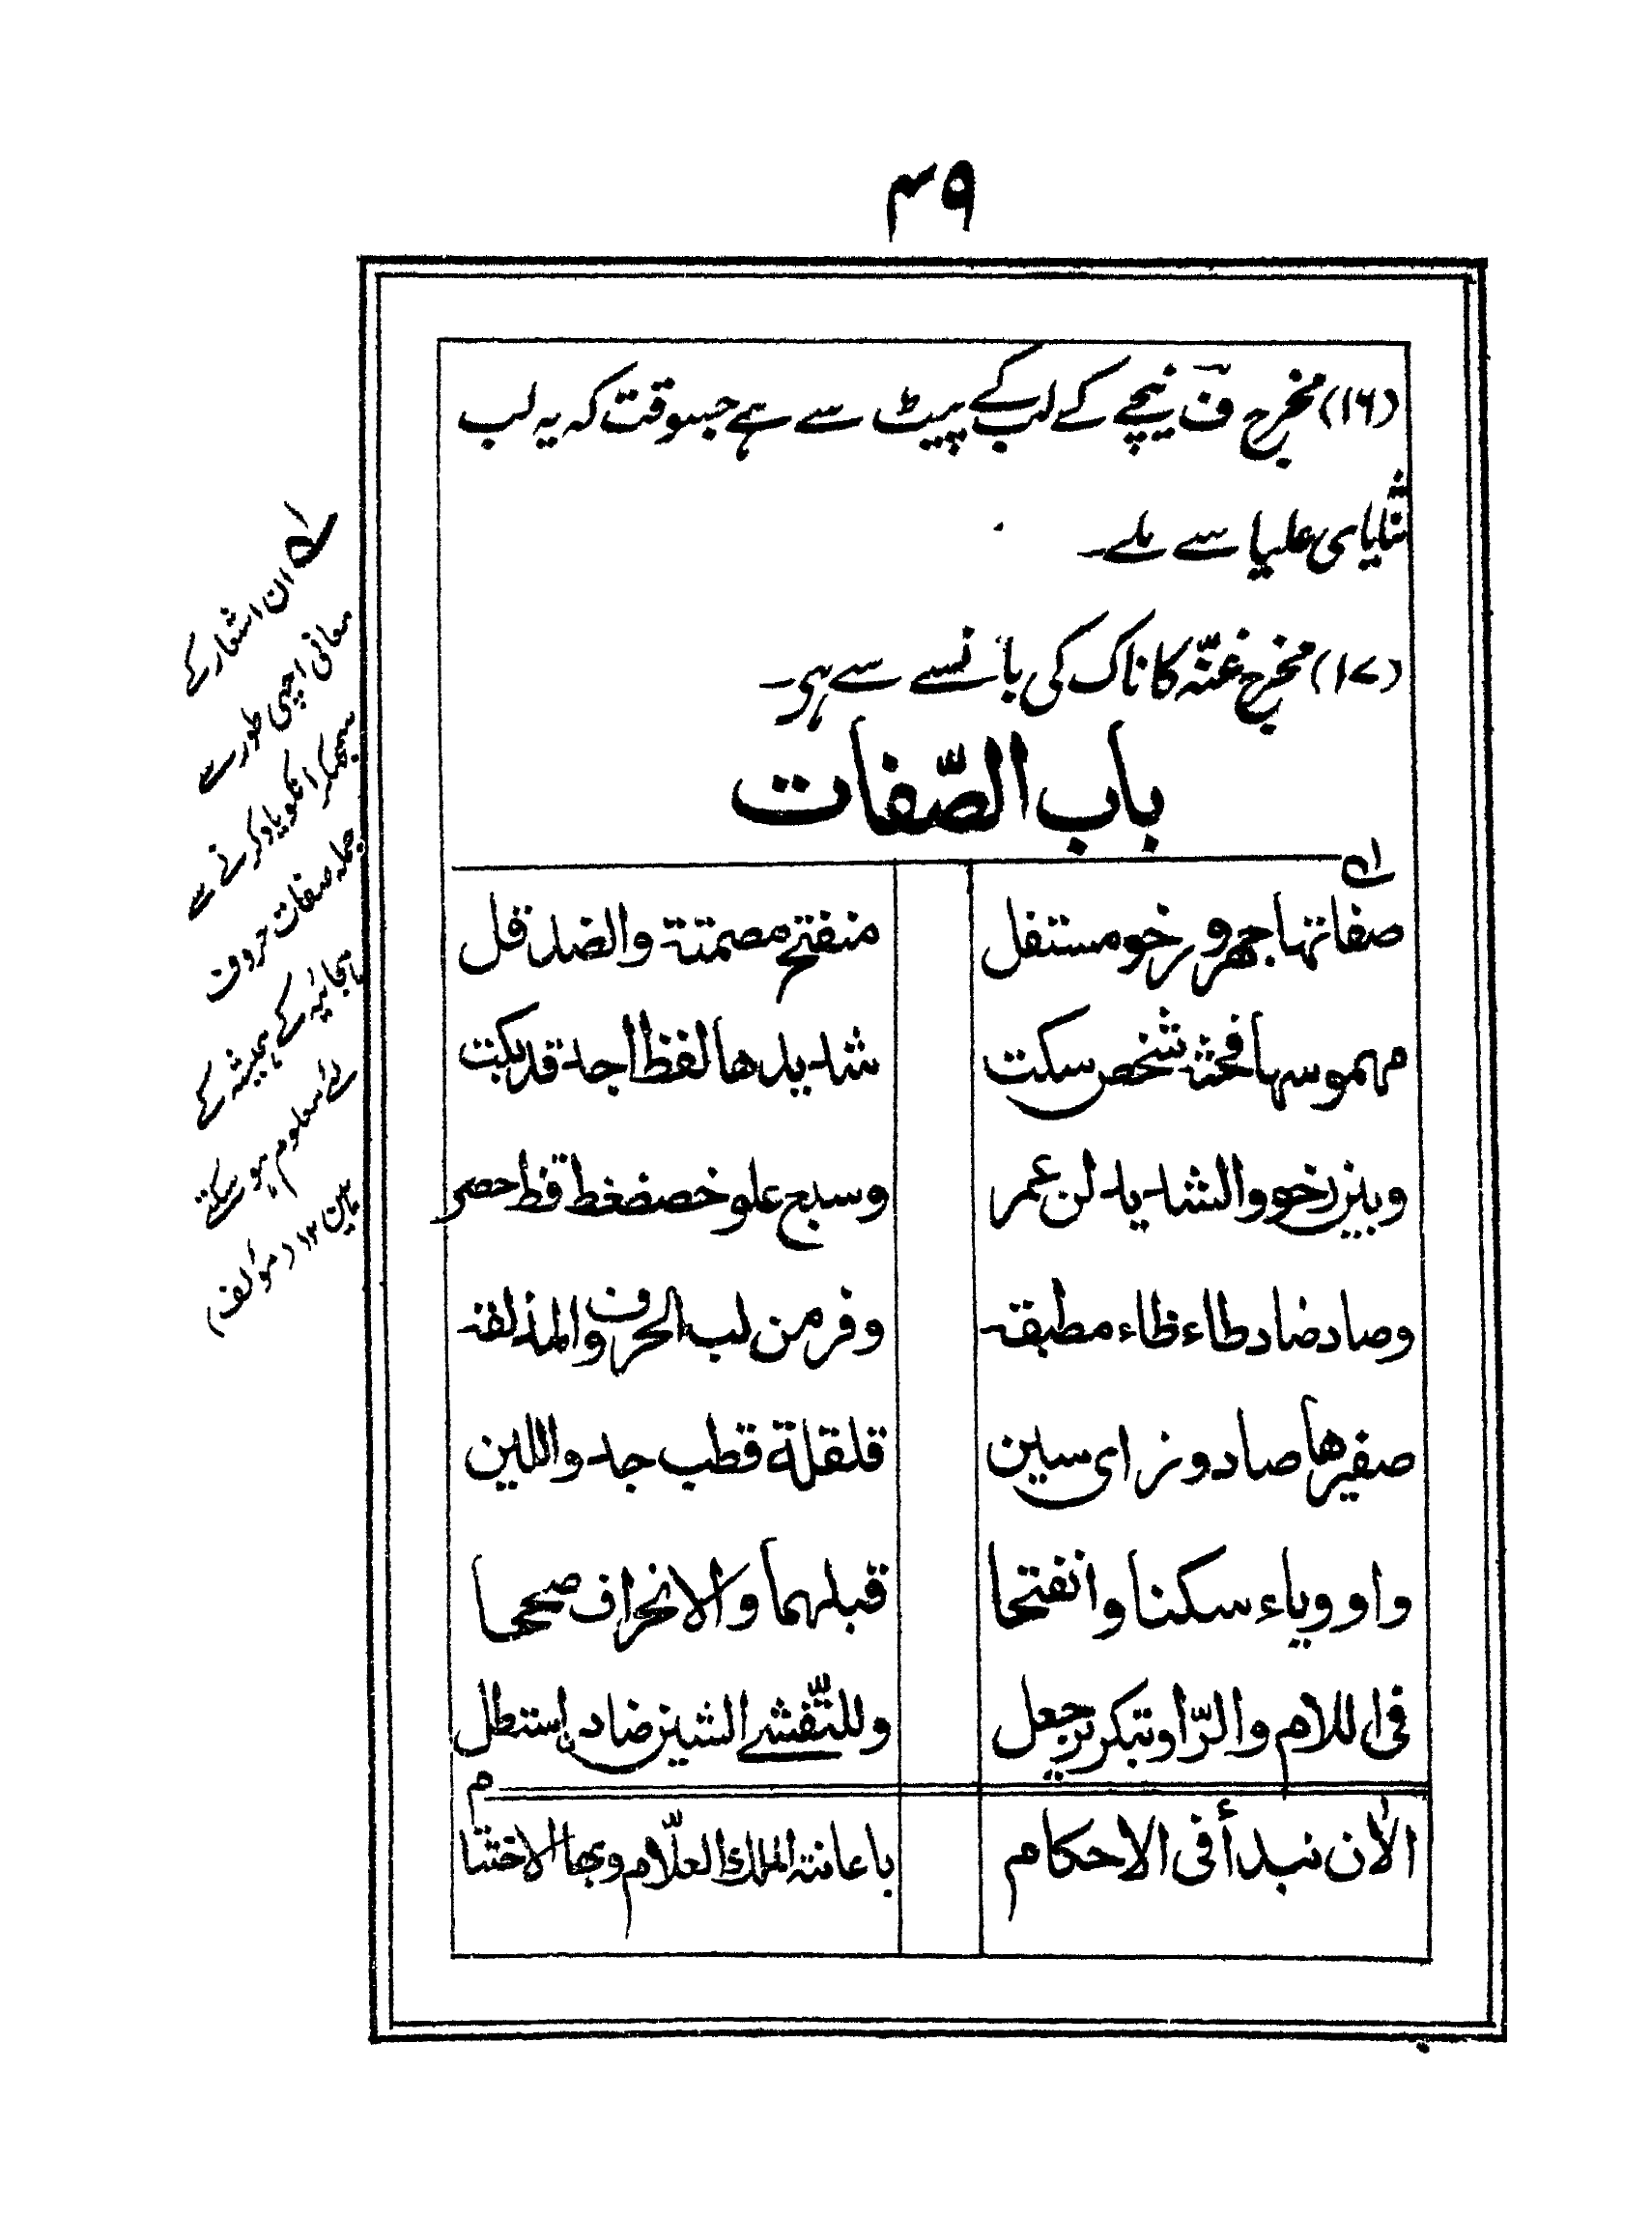 ۴۹
(۱۶) مخرج ف نیچے کے لب کے پیٹ سے ہے جسوقت کہ یہ لب
ثنایای علیا سے ملے۔
(۱۷) مخرج غنّہ کا ناک کی بانسے سے ہی۔
باب الصّفات
صفاتها جهر ورخو مستفل
منفتح مصمتة والضد قل
مهموسها فحثه شخص سكت
شديدها لفظ اجد قد بكت
وبين رخو والشديد لن عمر
وسبع علو خص ضغط قظ حصر
وصاد ضاد طاء ظاء مطبقة
وفر من لب الحرف والمذلقة
صفيرها صاد وزاى سين
قلقلة قطب جد واللين
واو وياء سكنا وانفتحا
قبلهما والانحراف صححا
فى اللام والرّا وبتكرير جعل
وللتّفشے الشين ضاد استطل
الآن نبدأ فى الاحكام
باعانة الملك العلّام وبها الاختتام
لے ان اشعار کے
معانی اچھی طور سے
سمجھکر انکو یاد کرنے سے
جملہ صفات حروف
ہجائیہ کے ہمیشہ کے
لئے معلوم ہو سکتے
ہین ۱۲ (مؤلف)